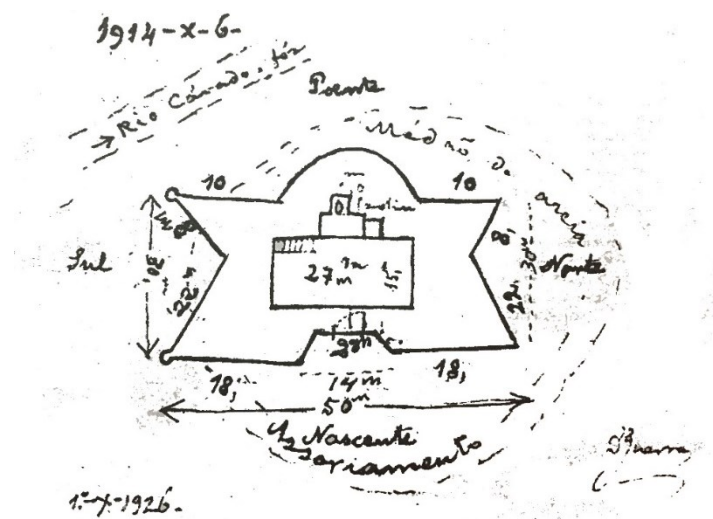 1914-X-6-
Rio Cávado, fóz
Poente
Médão de areia
10
10
8,
8,
Sul
30,
22,
27m
30m
Norte
22,
18,
14m
18,
50m
Nascente
Soriamento
1º-X-1926-